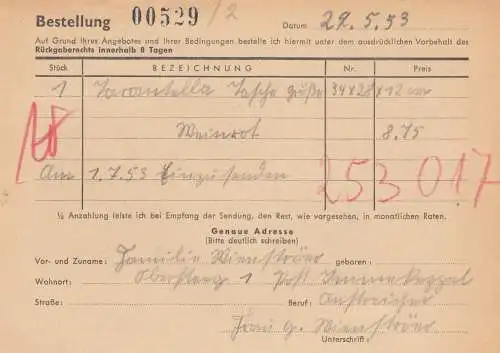 Bestellung 00529 /2 Datum 29.5.53
Auf Grund Ihres Angebotes und Ihrer Bedingungen bestelle ich hiermit unter dem ausdrücklichen Vorbehalt des
Rückgaberechts innerhalb 8 Tagen
Stück BEZEICHNUNG Nr. Preis
1 Tarantella Tasche Größe 34x28x12 cm
Weinrot 8.75
Am 1.7.53 Einzusenden
253017
⅓ Anzahlung leiste ich bei Empfang der Sendung, den Rest, wie vorgesehen, in monatlichen Raten.
Genaue Adresse
(Bitte deutlich schreiben)
Vor- und Zuname: Familie Wienströer geboren:
Wohnort: 1 Post
Straße: Beruf: Anstreicher
Frau G. Wienströer
Unterschrift